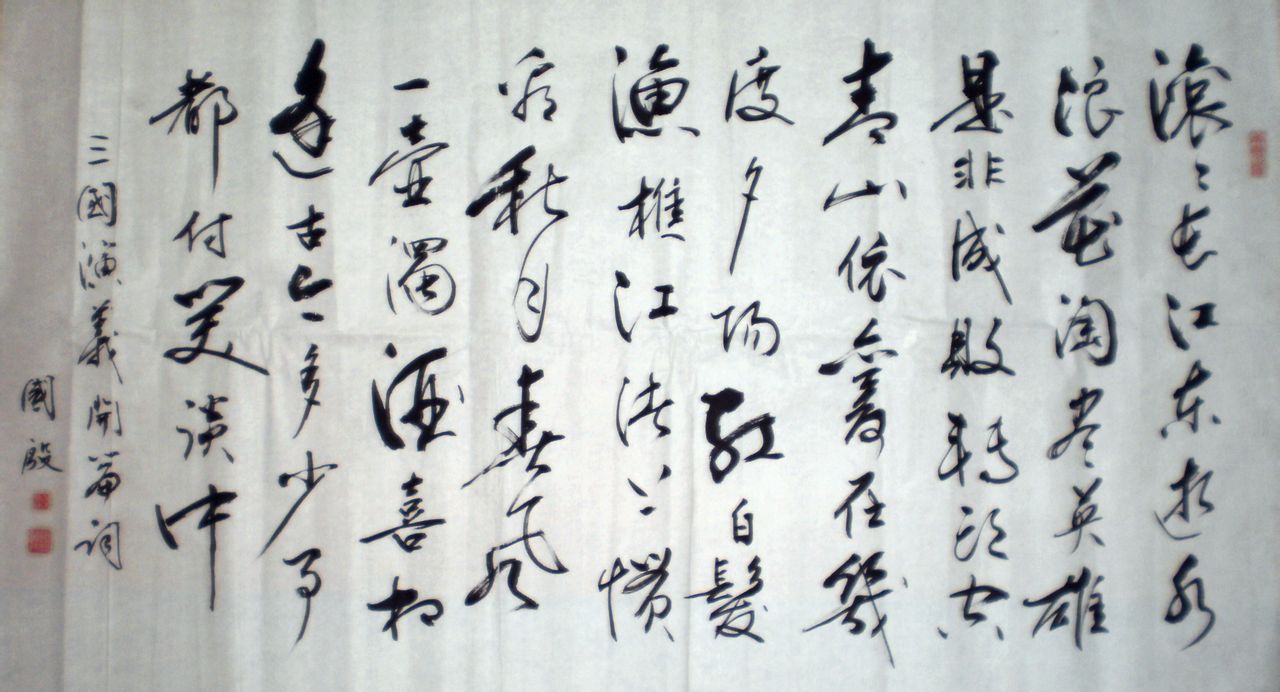 滚々长江东逝水
浪花淘尽英雄
是非成败转头空
青山依旧在幾
度夕阳红白髮
渔樵江渚上惯
看秋月春风
一壶濁酒喜相
逢古今多少事
都付笑谈中
三國演義開篇词
國殷